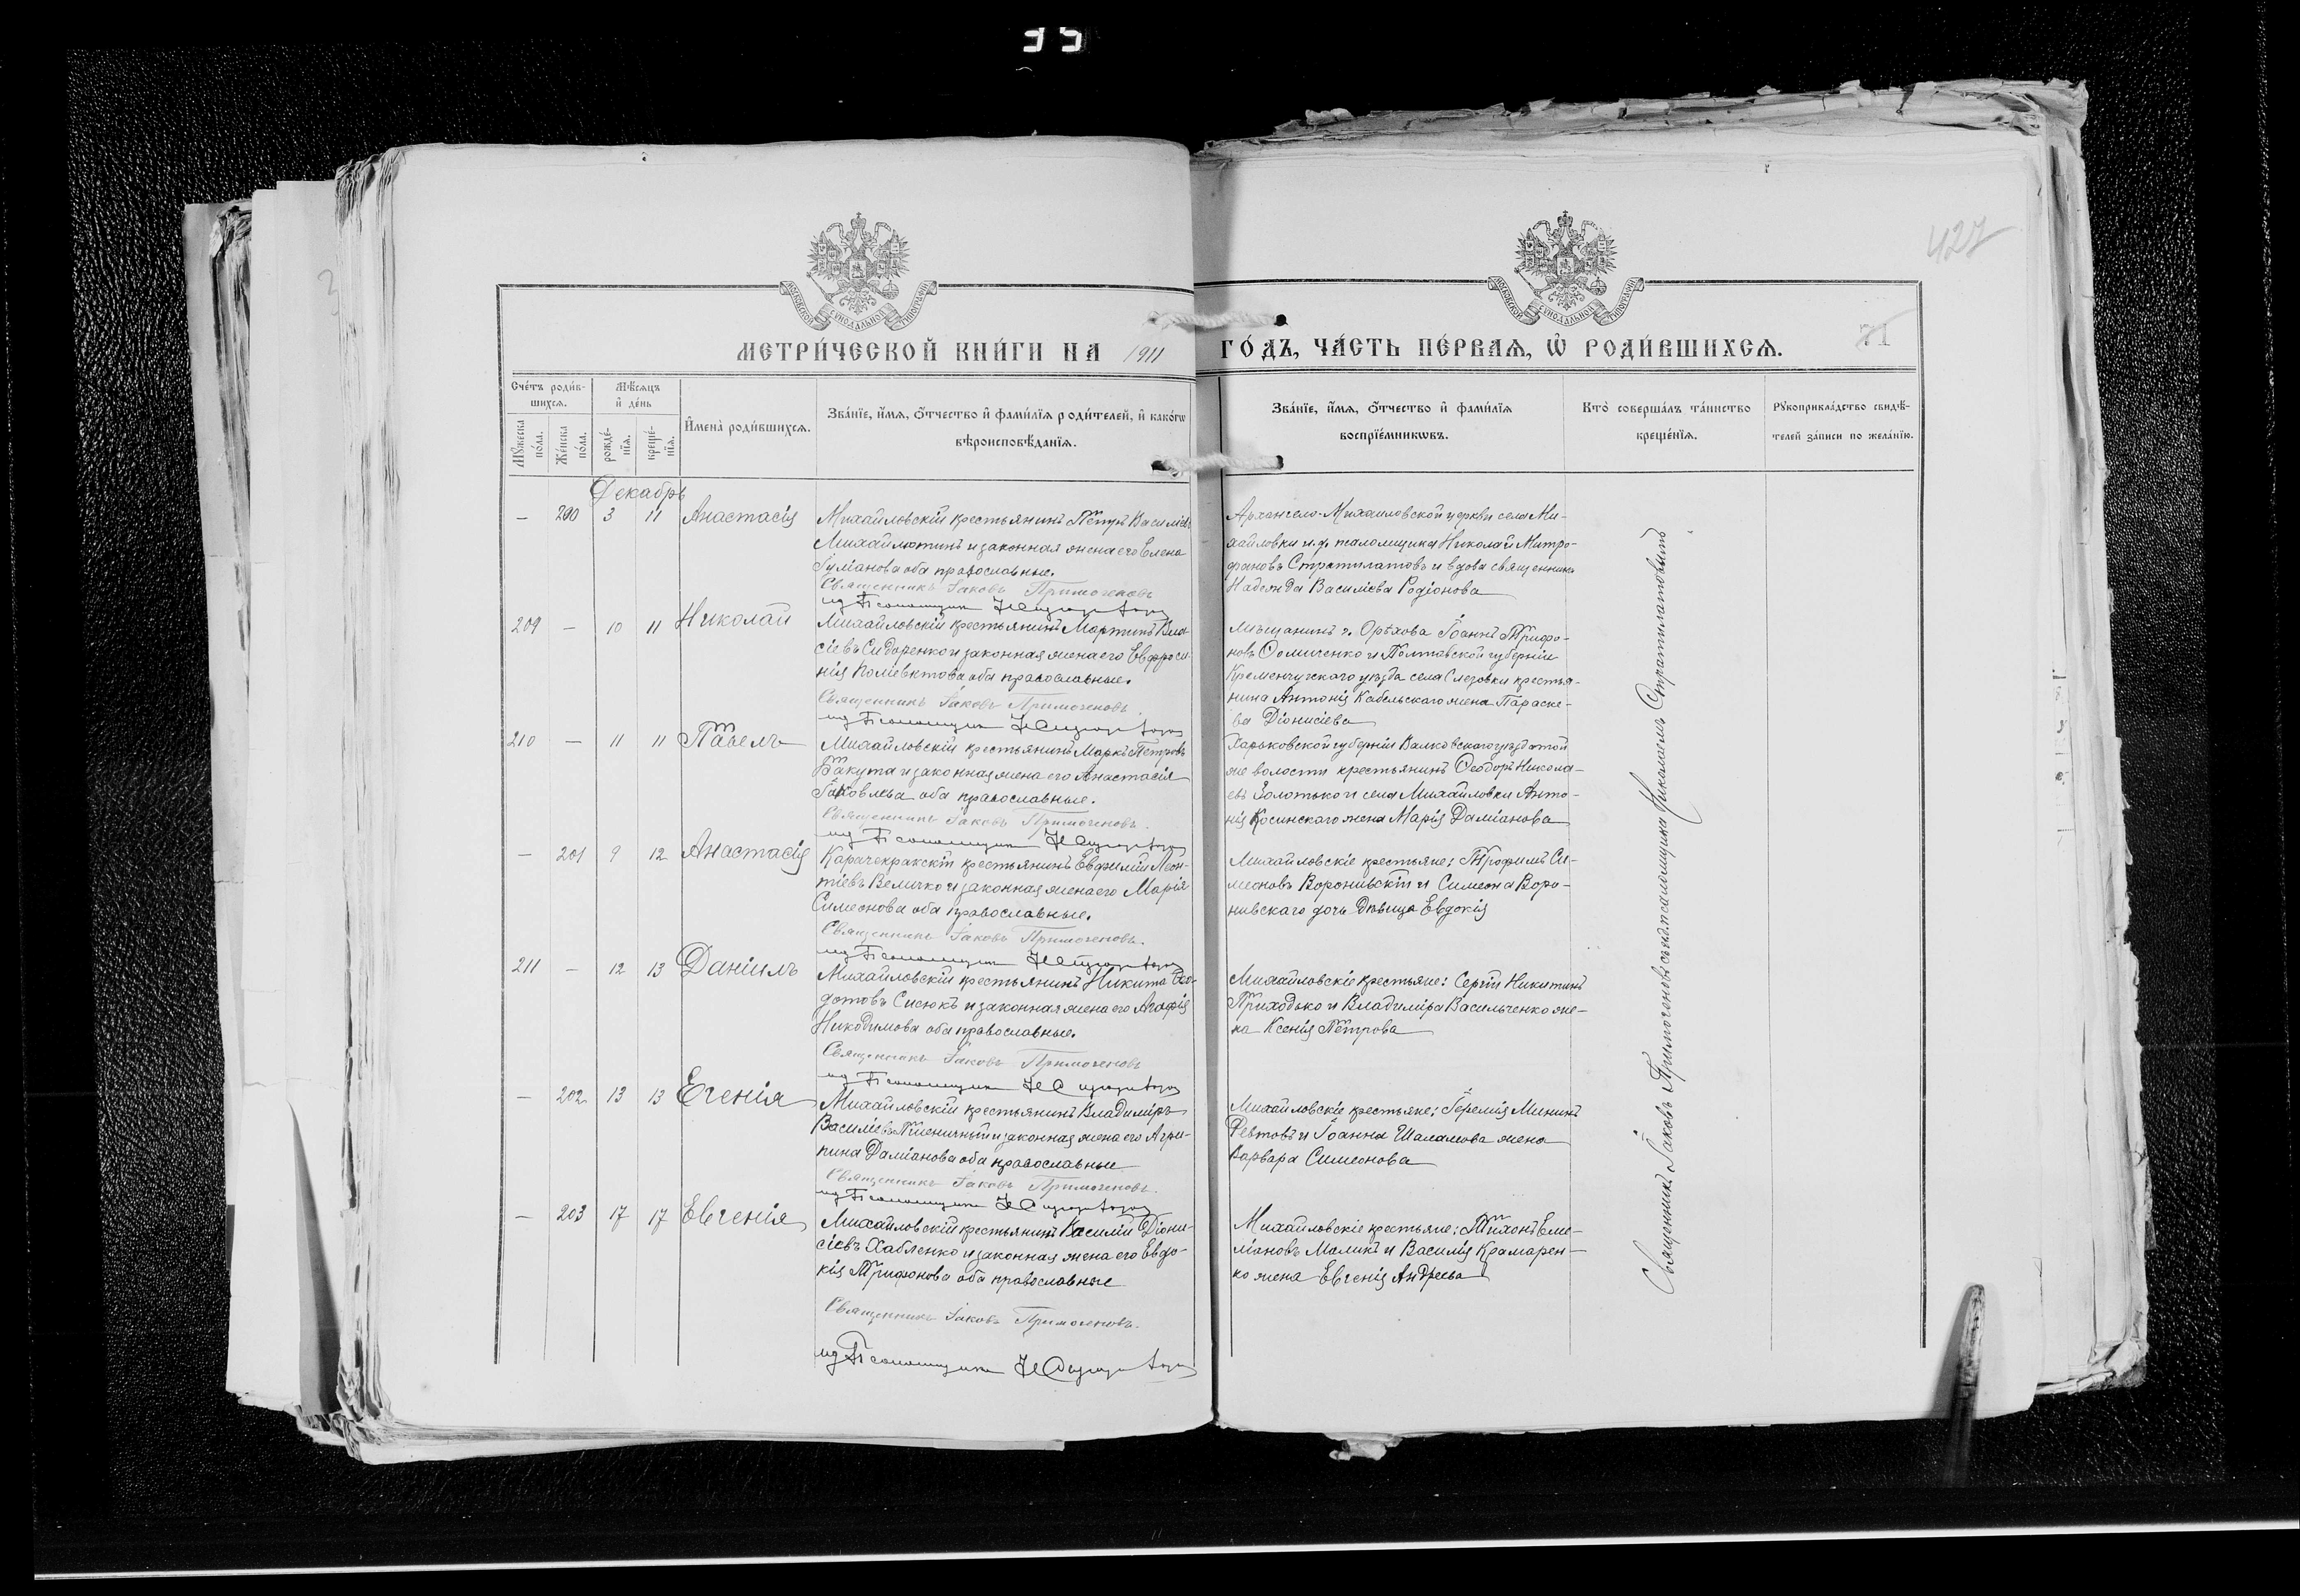 427
МОСКОВСКОЙ СѴНОДАЛЬНОЙ ТИПОГРАФІИ
МОСКОВСКОЙ СѴНОДАЛЬНОЙ ТИПОГРАФІИ
МЕТРИ́ЧЕСКОЙ КНИ́ГИ НА 1911 ГО́ДЪ, ЧА́СТЬ ПЕ́РВАЯ, Ѡ РОДИ́ВШИХСЯ. 71
Сче́тъ роди́в-
шихся.
Мѣ́сяцъ
и де́нь
Му́жеска по́ла.
Же́нска по́ла.
рожде́-
нїя.
креще́-
нїя.
Имена̀ роди́вшихся.
Зва́нїе, и́мя, ѻ́тчество и фами́лїя роди́телей, и како́гѡ
вѣроисповѣ́данїя.
Зва́нїе, и́мя, ѻ́тчество и фами́лїя
воспрїе́мникѡвъ.
Кто̀ соверша́лъ та́инство
креще́нїя.
Рꙋкоприкла́дство свидѣ́-
телей за́писи по жела́нїю.
Декабрь
— 200 3 11 Анастасія
Михайловскій крестьянинъ Петръ Василіевъ
Михайлютинъ и законная жена его Елена
Іуліанова оба православные.
Священникъ Іаковъ Примогеновъ
ид Псаломщика
Архангело-Михаиловской церкви села Ми-
хайловки и.д. псаломщика Николай Митро-
фановъ Стратилатовъ и вдова священника
Надежда Василіева Родіонова
209 — 10 11 Николай
Михайловскій крестьянинъ Мартинъ Вла-
сіевъ Сидоренко и законная жена его Евфроси-
нія Поліевктова оба православные.
Священникъ Іаковъ Примогеновъ.
ид Псаломщика
Мѣщанинъ г. Орѣхова Іоаннъ Трифо-
новъ Ѳомиченко и Полтавской губерніи
Кременчугскаго уѣзда села крестья-
нина Антонія Кабельскаго жена Параске-
ва Діонисіева
210 — 11 11 Павелъ
Михайловскій крестьянинъ Маркъ Петровъ
Бакута и законная жена его Анастасія
Іаковлева оба православные.
Священникъ Іаковъ Примогеновъ.
ид Псаломщика
Харьковской губерніи Валковскаго уѣзда той
же волости крестьянинъ Ѳеодоръ Никола-
евъ Золотько и села Михайловки Анто-
нія Косинскаго жена Марія Даміанова
— 201 9 12 Анастасія
Карачекракскій крестьянинъ Евфимій Леон-
тіевъ Величко и законная жена его Марія
Симеонова оба православные.
Священникъ Іаковъ Примогеновъ.
ид Псаломщика
Михайловскіе крестьяне: Трофимъ Си-
меоновъ Воронивскій и Симеона Воро-
нивскаго дочь дѣвица Евдокія
211 — 12 13 Даніилъ
Михайловскій крестьянинъ Никита Ѳео-
дотовъ Сисюкъ и законная жена его Агафія
Никодимова оба православные.
Священникъ Іаковъ Примогеновъ
ид Псаломщика
Михайловскіе крестьяне: Сергій Никитинъ
Приходько и Владиміра Васильченко же-
на Ксенія Петрова
— 202 13 13 Егенія
Михайловскій крестьянинъ Владиміръ
Василіевъ Пшеничный и законная жена его Агри-
пина Даміанова оба православные
Священникъ Іаковъ Примогеновъ.
ид Псаломщика
Михайловскіе крестьяне: Іеремія Мининъ
Февтовъ и Іоанна Шаламова жена
Варвара Симеонова
— 203 17 17 Евгенія
Михайловскій крестьянинъ Василій Діони-
сіевъ Хабленко и законная жена его Евдо-
кія Трифонова оба православные
Священникъ Іаковъ Примогеновъ.
ид Псаломщика
Михайловскіе крестьяне: Тихонъ Еме-
ліановъ Маликъ и Василія Крамарен-
ко жена Евгенія Андреева
Священникъ Іаковъ Примогеновъ съ и.д. псаломщика Николаемъ Стратилатовымъ